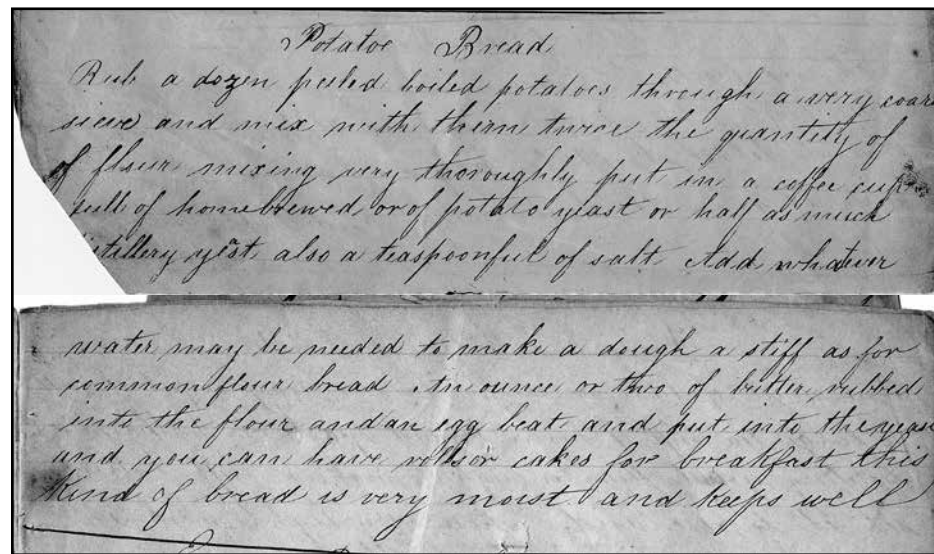 Potatoe Bread
Rub a dozen peeled boiled potatoes through a very coars
sieve and mix with them twice the quantity of
of flour mixing very thoroughly put in a coffee cup
full of homebrewed or of potato yeast or half as much
distillery yest also a teaspoonful of salt Add whatever
water may be needed to make a dough a stiff as for
common flour bread An ounce or two of butter rubbed
into the flour and an egg beat and put into the yeast
and you can have rolls or cakes for breakfast this
Kind of bread is very moist and keeps well